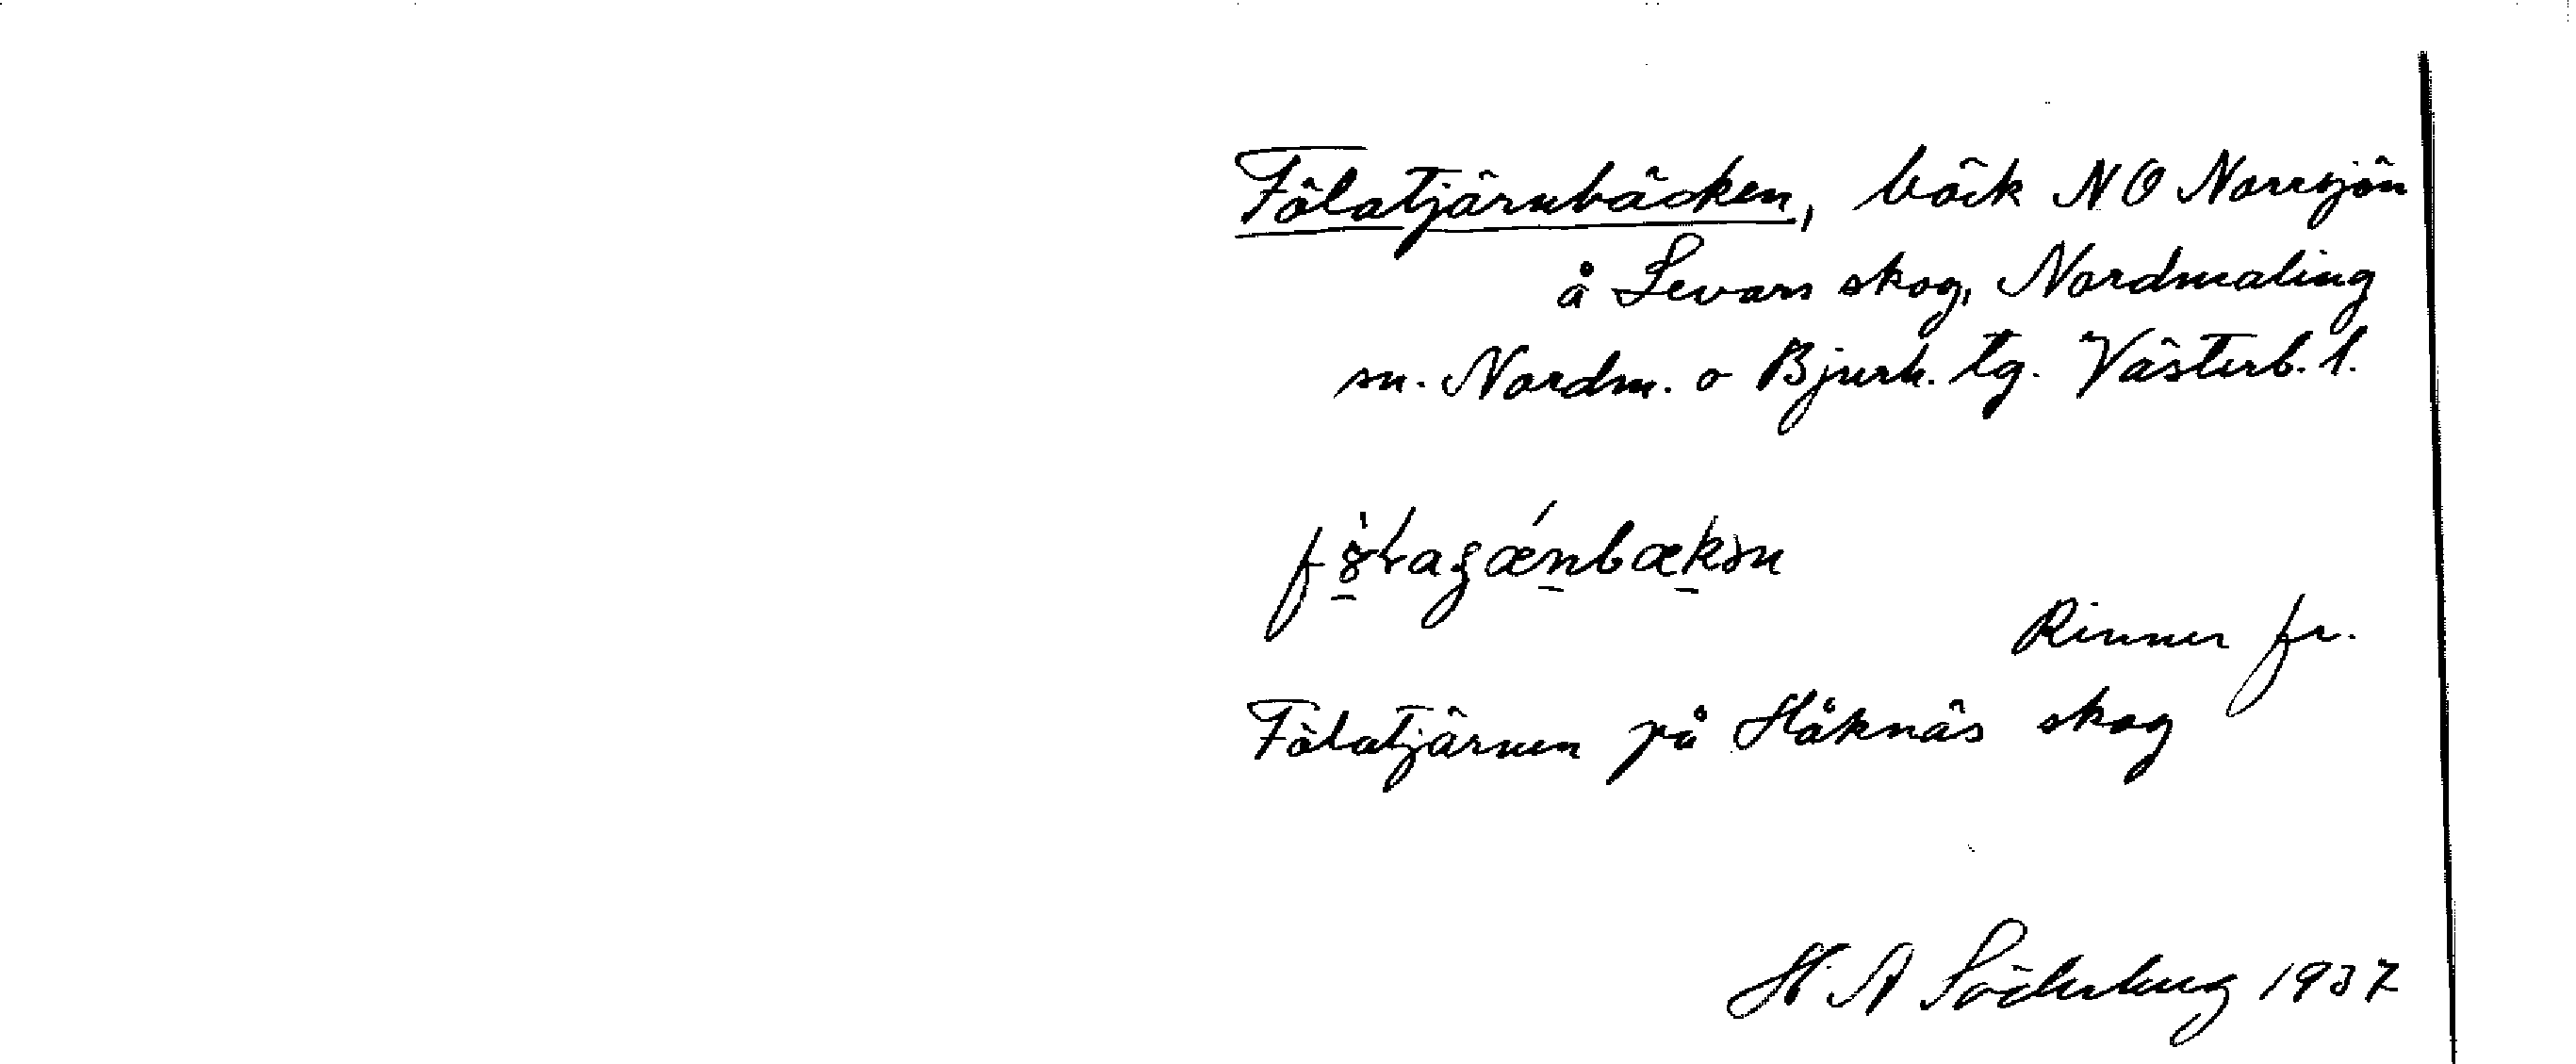 Fölatjärnbäcken, bäck NO Norrsjön
å Levars skog, Nordmaling
sn. Nordm. o Bjurh. tg. Västerb. l.
Rinner fr.
Fölatjärnen på Håknäs skog
H A Söderberg 1937